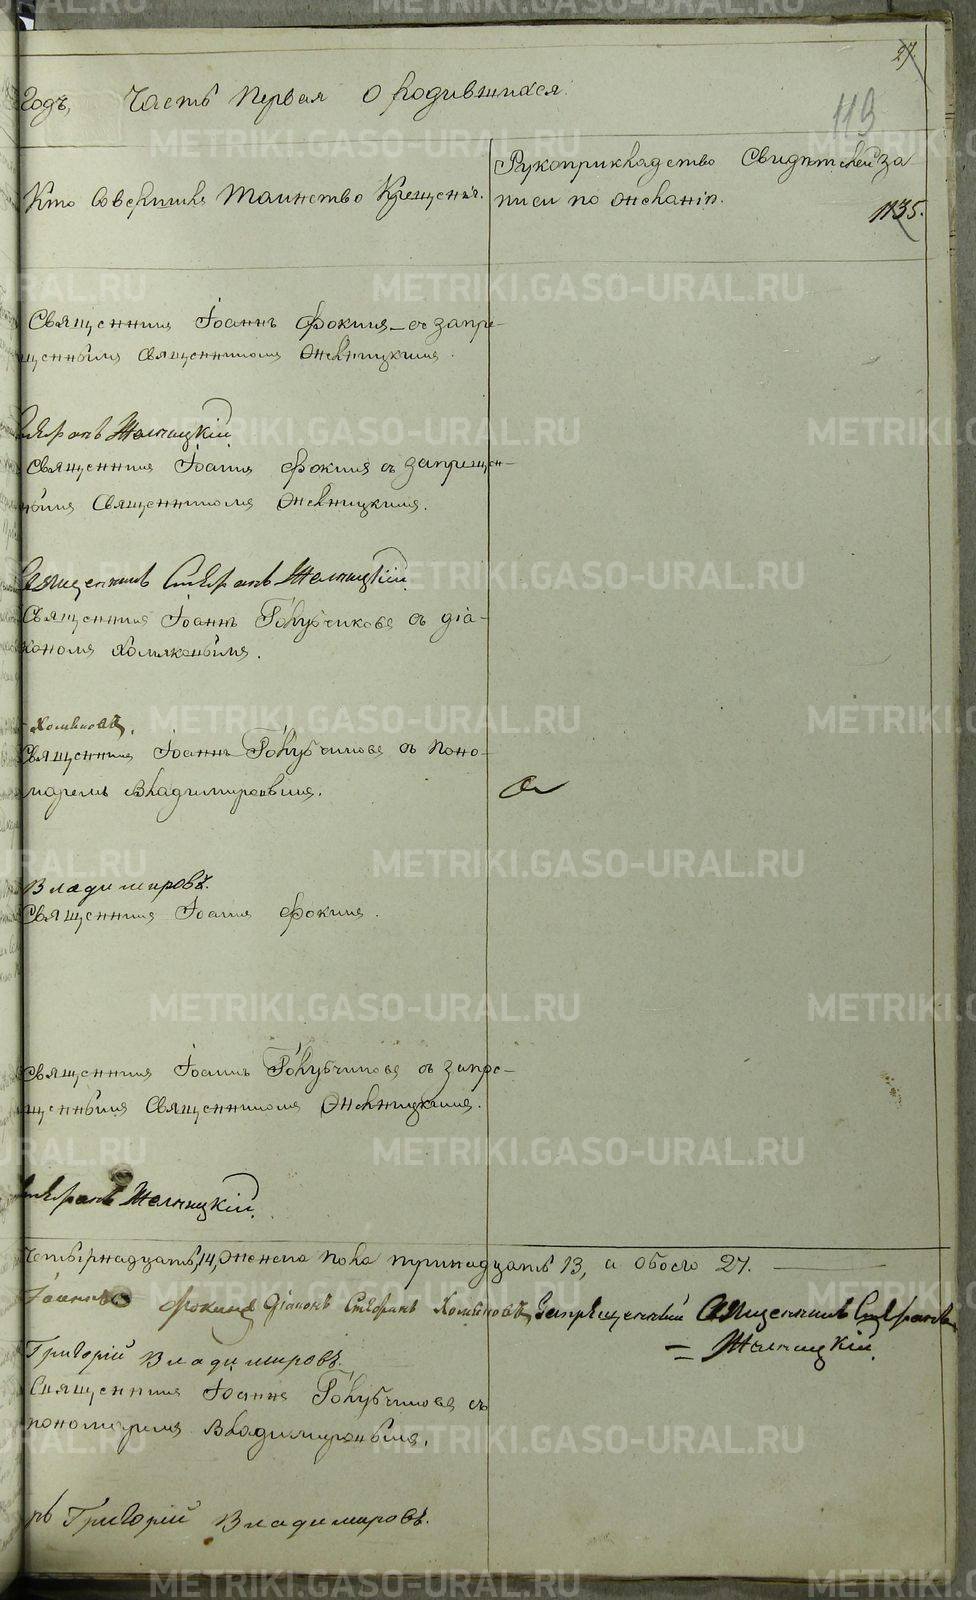 27.
Годъ, Часть Первая О родившихся.
119
Кто Совершилъ Таинство Крещенія.
Рукоприкладство Свидѣтелей за
писи по желанію.
1135.
Священникъ Іоаннъ Фокинъ съ запре-
щеннымъ Священникомъ Жельницкимъ.
Стефанъ Жельницкій
Священникъ Іоаннъ Фокинъ съ запрещен-
нымъ Священникомъ Жельницкимъ.
Священникъ Стефанъ Жельницкій
Священникъ Іоаннъ Голубчиковъ съ діа-
кономъ Холмконымъ.
Священникъ Іоаннъ Голубчиковъ съ поно-
маремъ Владимировымъ.
Владимировъ.
Священникъ Іоаннъ Фокинъ.
Священникъ Іоаннъ Голубчиковъ съ запре-
щеннымъ Священникомъ Жельницкимъ.
Стефанъ Жельницкій.
четырнадцать, 14, женска пола тринадцать 13, а обоего 27.
Іоаннъ Фокинъ Діаконъ Стефанъ Запрещенный Священникъ Стефанъ
Жельницкій.
Григорій Владимировъ.
Священникъ Іоаннъ Голубчиковъ съ
пономаремъ Владимировымъ.
рь Григорій Владимировъ.
METRIKI.GASO-URAL.RU